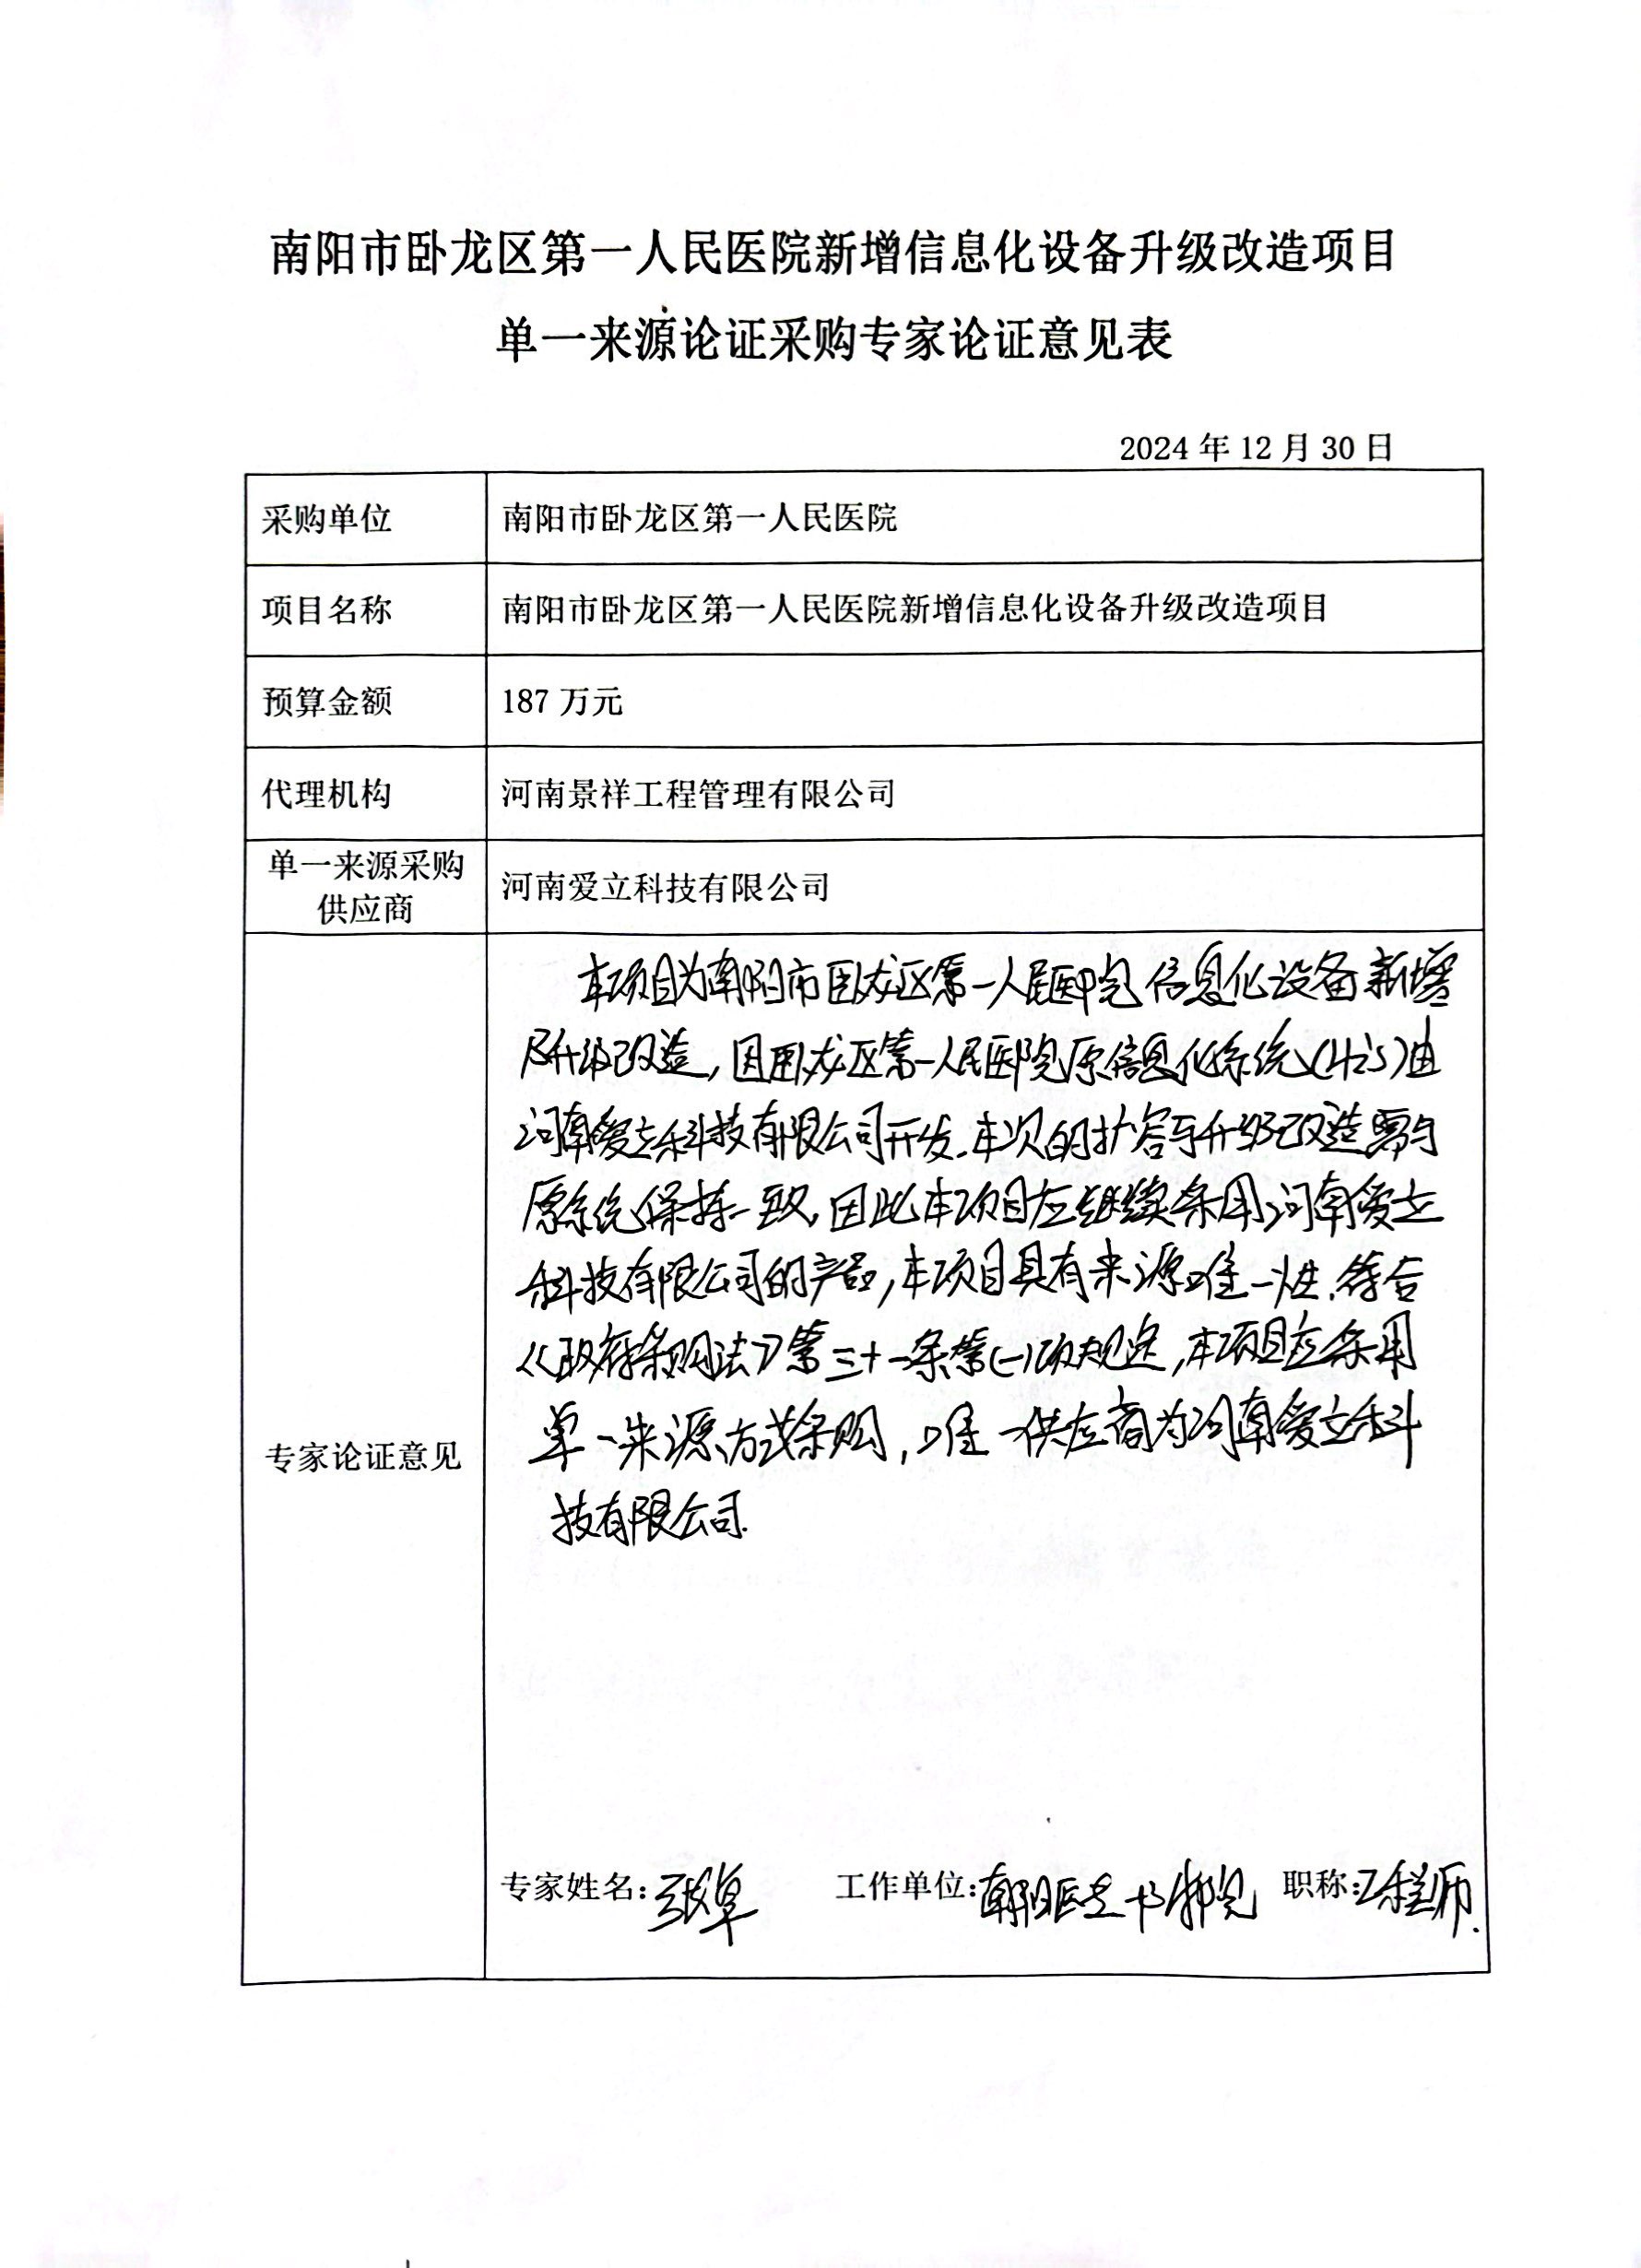 南阳市卧龙区第一人民医院新增信息化设备升级改造项目
单一来源论证采购专家论证意见表
2024 年 12 月 30 日
采购单位
南阳市卧龙区第一人民医院
项目名称
南阳市卧龙区第一人民医院新增信息化设备升级改造项目
预算金额
187 万元
代理机构
河南景祥工程管理有限公司
单一来源采购
供应商
河南爱立科技有限公司
专家论证意见
本项目为南阳市卧龙区第一人民医院信息化设备新增
及升级改造，因卧龙区第一人民医院原信息化系统(His)由
河南爱立科技有限公司开发.本次的扩容与升级改造需与
原系统保持一致,因此本项目应继续采用河南爱立
科技有限公司的产品,本项目具有来源唯一性.符合
《政府采购法》第三十一条第(一)项规定,本项目应采用
单一来源方式采购,唯一供应商为河南爱立科
技有限公司.
专家姓名:张 工作单位:南阳医专附院 职称:工程师.